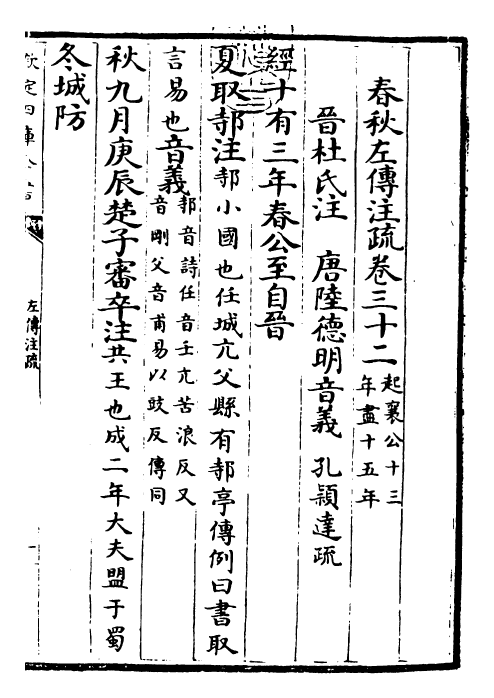 春秋左傳注疏卷三十二起襄公十三年盡十五年
晉杜氏注　唐陸德明音義　孔穎達疏
經十有三年春公至自晉
夏取邿注邿小國也任城亢父縣有邿亭傳例曰書取
言易也音義邿音詩任音壬亢苦浪反又音剛父音甫易以豉反傳同
秋九月庚辰楚子審卒注共王也成二年大夫盟于蜀
冬城防
欽定四庫全書
左傳注疏
一